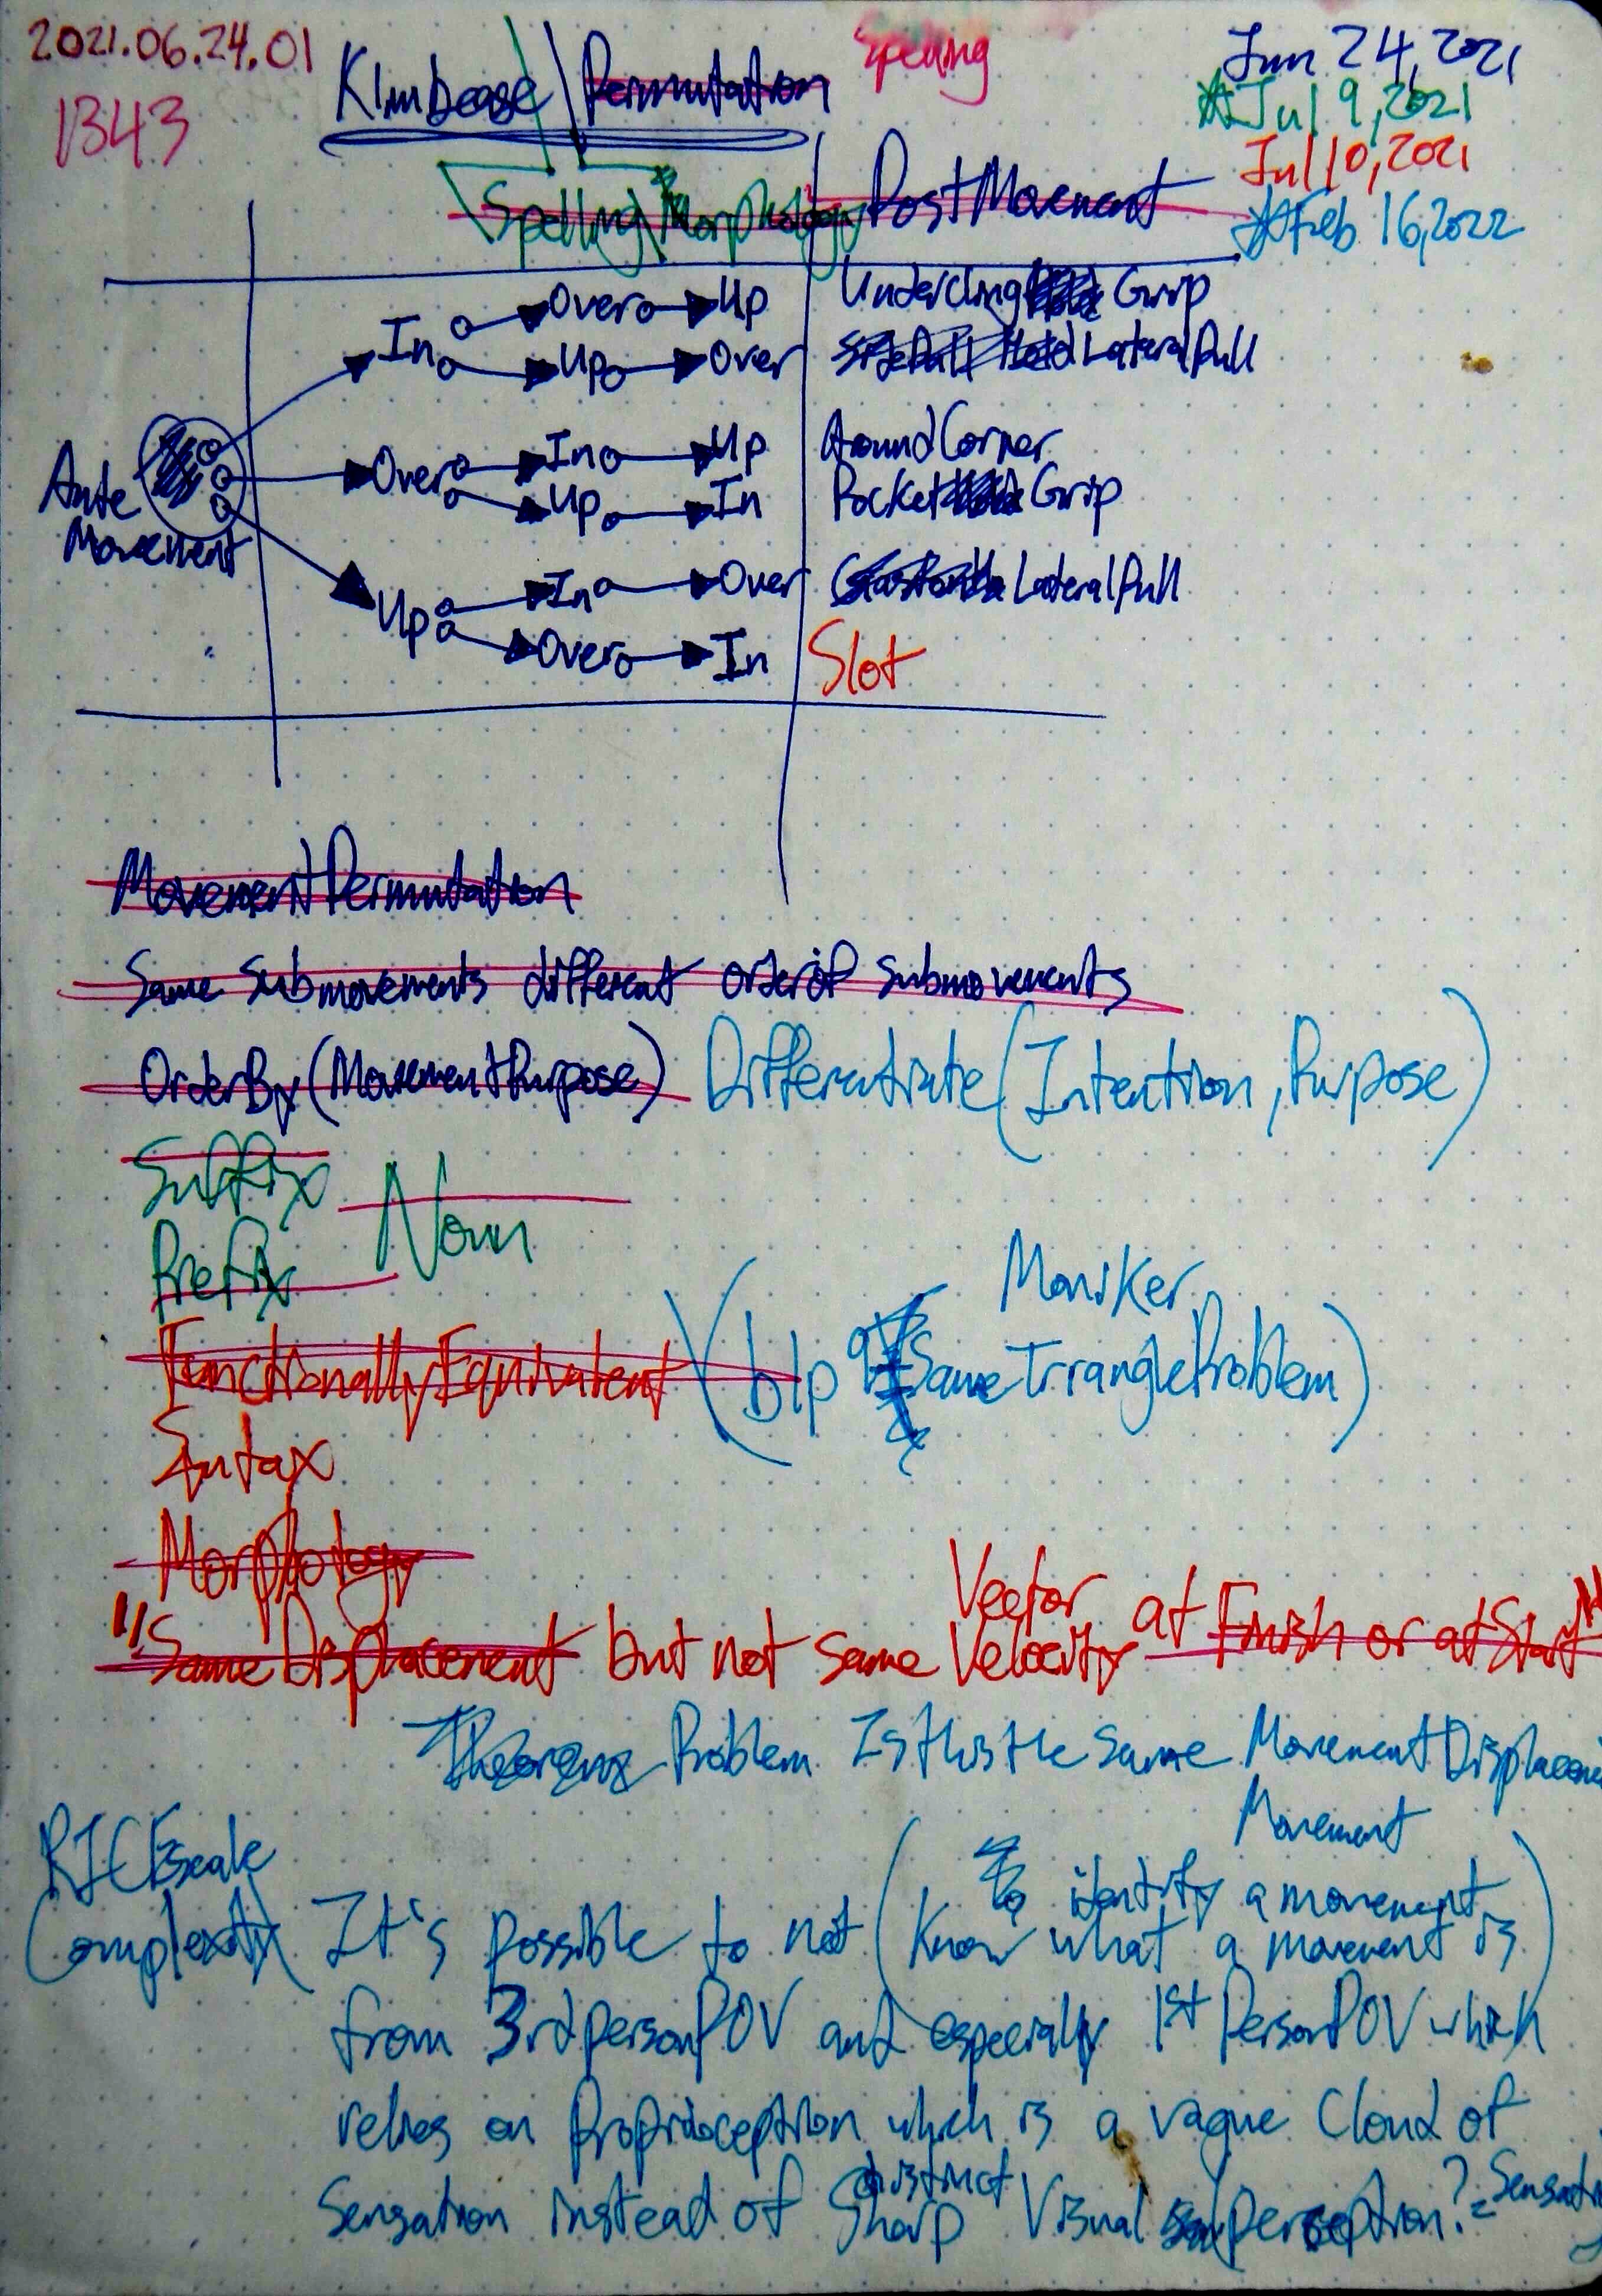 2021.06.24.01
1343
Klimbease Permutation Spelling
Jun 24, 2021
Jul 9, 2021
Jul 10, 2021
Feb 16, 2022
Spelling Morphology PostMovement
In Over Up Undercling Grip
Up Over LateralPull
Ante Movement
Over In Up AroundCorner
Up In Pocket Grip
Up In Over LateralPull
Over In Slot
MovementPermutation
Same submovements different order of submovements
OrderBy(MovementPurpose) Differentiate(Intention, Purpose)
Suffix
Prefix Noun
Moniker
FunctionallyEquivalent (blp SameTriangleProblem)
Syntax
Morphology
Vector
"Same Displacement but not same Velocity at Finish or at Start"
Theorem Problem Is this the same Movement
Movement
RICEscale
Complexity
to identify a movement
It's possible to not (know what a movement is)
from 3rdpersonPOV and especially 1stPersonPOV which
relies on Proprioception which is a vague Cloud of
distinct
Sensation instead of Sharp Visual perception? =